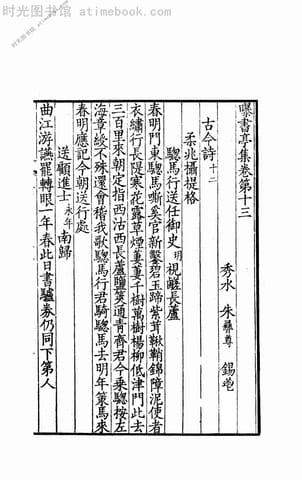 时光图书馆 atimebook.com
曝書亭集卷第十三
秀水 朱彝尊 錫鬯
古今詩十二
柔兆攝提格
驄馬行送任御史明視鹺長蘆
春明門東驄馬嘶奚官新鑿碧玉蹄紫茸鞦鞘錦障泥使者
衣繡行長堤寒花露草煙萋萋千樹萬樹楊柳低津門此去
三百里來朝定指西沽西長蘆鹽筴通青齊君今乘驄按左
海章綬不殊還會稽我歌驄馬行君騎驄馬去明年策馬來
春明應記今朝送行處
送顧進士永年南歸
曲江游讌罷轉眼一年春此日書驢券仍同下第人
时光图书馆 atimebook.com